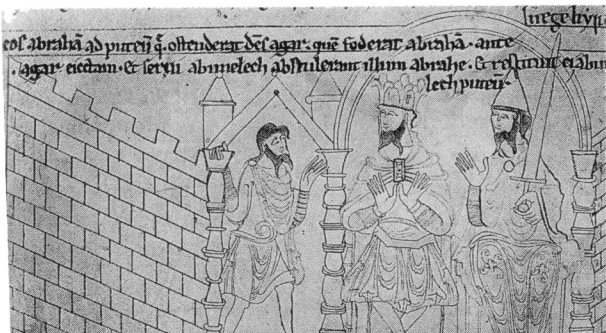 eos abrahā ad puteū q̄ ostenderat dēs agar · quē foderat abrahā · ante
· agar eiectam · Et seruii abimelech abstulerunt illum abrahe · & restituit ei abim
lech puteū ·